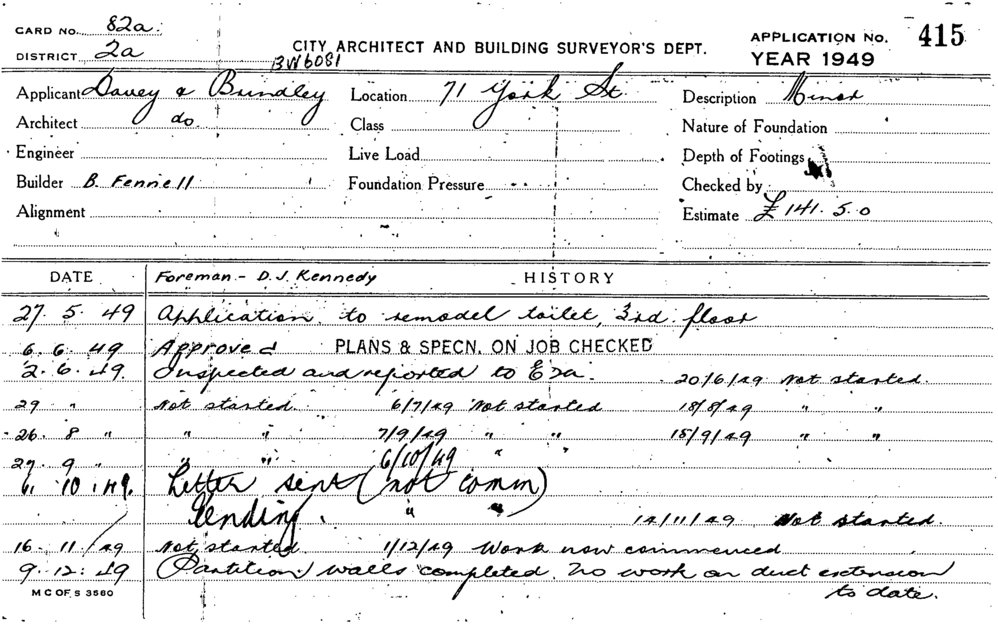 CARD NO. 82a.
DISTRICT 2a
CITY ARCHITECT AND BUILDING SURVEYOR'S DEPT.
BW6081
APPLICATION NO. 415
YEAR 1949
Applicant Davey & Brindley
Location 71 York St.
Description Minor
Architect do
Class
Nature of Foundation
Engineer
Live Load
Depth of Footings
Builder B. Fennell
Foundation Pressure
Checked by
Alignment
Estimate £141.5.0
DATE Foreman - D.J. Kennedy HISTORY
27. 5. 49 Application to remodel toilet, 3rd floor
6. 6. 49 Approved PLANS & SPECN. ON JOB CHECKED
2. 6. 49. Inspected and reported to 20/6/49 Not started.
29 " Not started. 6/7/49 Not started 18/8/49 " "
26. 8 " " " 7/9/49 " " 15/9/49 " "
27. 9 " " " 6/10/49 " "
6. 10. 49. Letter sent (not comm)
Pending. " " 14/11/49 Not started.
16. 11/49 Not started. 1/12/49 Work now commenced
9. 12. 49 Partition walls completed. No work on duct extension
to date.
M C OF S 3560